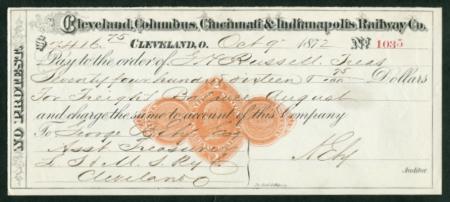 Cleveland, Columbus, Cincinnati & Indianapolis Railway Co.
$2416 75 CLEVELAND, O. Oct 9 1872 No 1035
Pay to the order of Russell, Treas
Twenty four hundred sixteen & 75/100 Dollars
For Freight Balance August
and charge the same to account of this Company
To George
Asst Treasurer
L S & M S Ry
Cleveland O
Auditor
NO PROTEST.